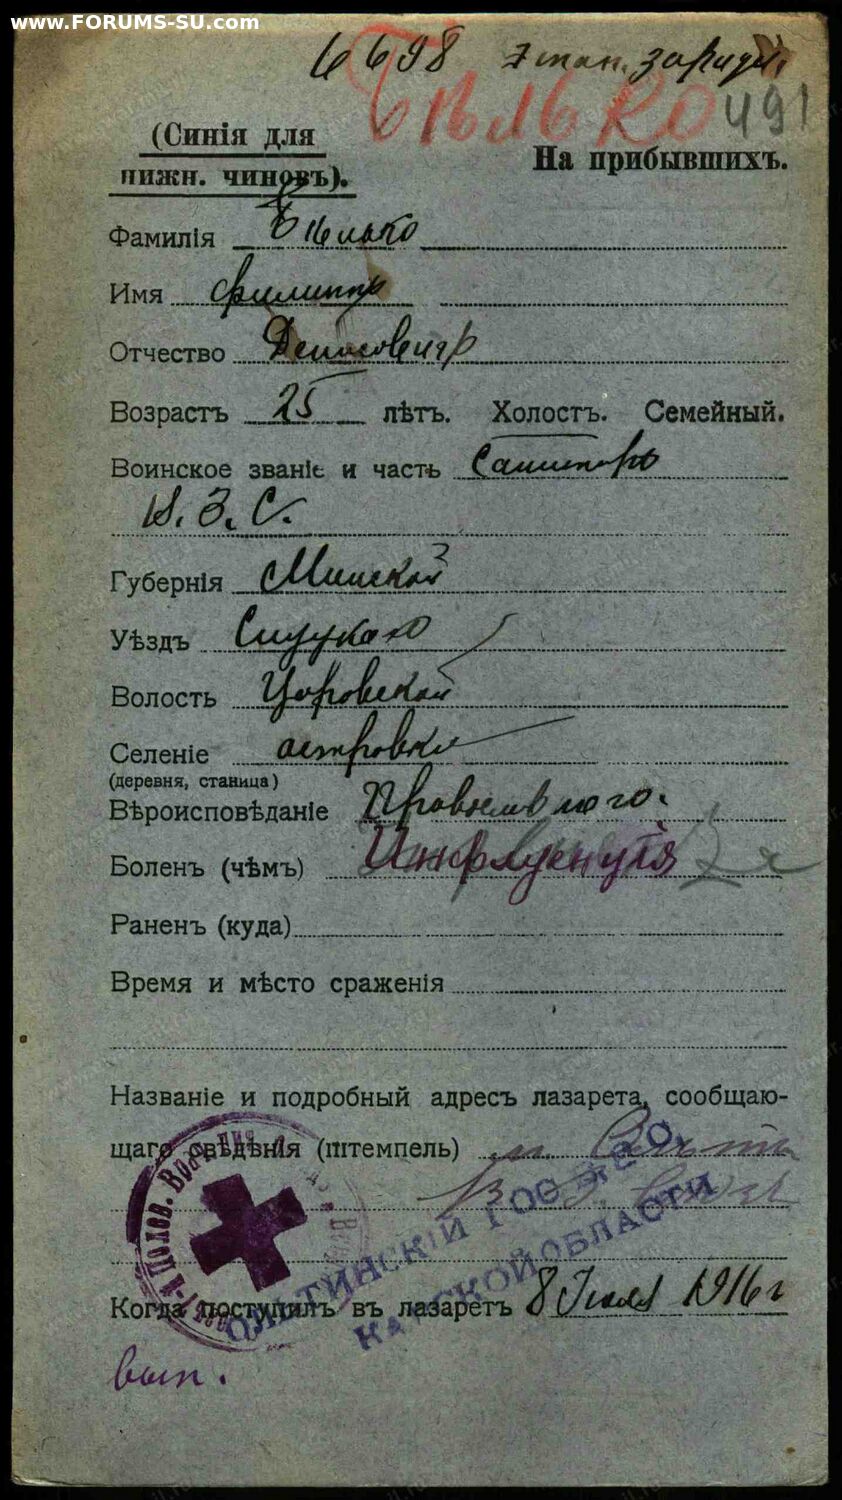 www.FORUMS-SU.com
6698 этап.
Бѣлько 491
(Синія для
нижн. чиновъ).
На прибывшихъ.
Фамилія Бѣлько
Имя Филиппъ
Отчество Денисовичъ
Возрастъ 25 лѣтъ. Холостъ. Семейный.
Воинское званіе и часть Санитаръ
В. З. С.
Губернія Минской
Уѣздъ Слуцкаго
Волость
Селеніе островки
(деревня, станица)
Вѣроисповѣданіе Православнаго.
Боленъ (чѣмъ) Инфлуенція
Раненъ (куда)
Время и мѣсто сраженія
Названіе и подробный адресъ лазарета, сообщаю-
щаго свѣдѣнія (штемпель)
ОЛЬТИНСКІЙ ГОС
КАРССКОЙ ОБЛАСТИ
Когда поступилъ въ лазаретъ 8 Іюля 1916 г
вып.